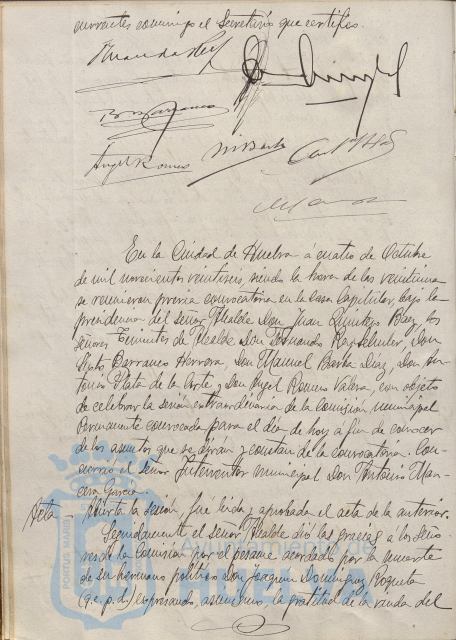 currentes conmigo el Secretario que certifico.
Angel Romeo
M Barba
En la Ciudad de Huelva á cuatro de Octubre
de mil novecientos veintiseis, siendo la hora de las veintiuna
se reunieron previa convocatoria en la Casa Capitular, bajo la
presidencia del señor Alcalde Don Juan Quintero Baez, los
señores Tenientes de Alcalde Don Fernando Rey Don
Barranco Herrera Don Manuel Barba Diaz, Don An-
tonio Plata de la Corte y Don Angel Romeo Valera, con objeto
de celebrar la sesión extraordinaria de la Comisión municipal
Permanente convocada para el dia de hoy a fin de conocer
de los asuntos que se dirán y constan de la convocatoria. Con-
currió el señor Interventor municipal Don Antonio Man-
cera Garcia.
Acta Abierta la sesión, fué leida y aprobada el acta de la anterior.
Seguidamente el señor Alcalde dió las gracias a los seño-
res de la Comisión por el pésame acordado por la muerte
de su hermano politico Don Joaquin Dominguez Roqueta
(q.e.p.d.) expresando, asimismo, la gratitud de la viuda del
PORTUS MARIS
Ayuntamiento de
HUELVA